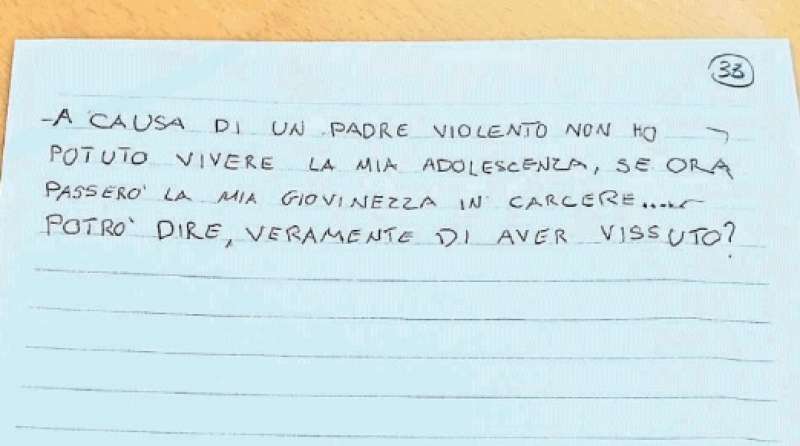 33
-A CAUSA DI UN PADRE VIOLENTO NON HO
POTUTO VIVERE LA MIA ADOLESCENZA, SE ORA
PASSERO' LA MIA GIOVINEZZA IN CARCERE.....
POTRO' DIRE, VERAMENTE DI AVER VISSUTO?